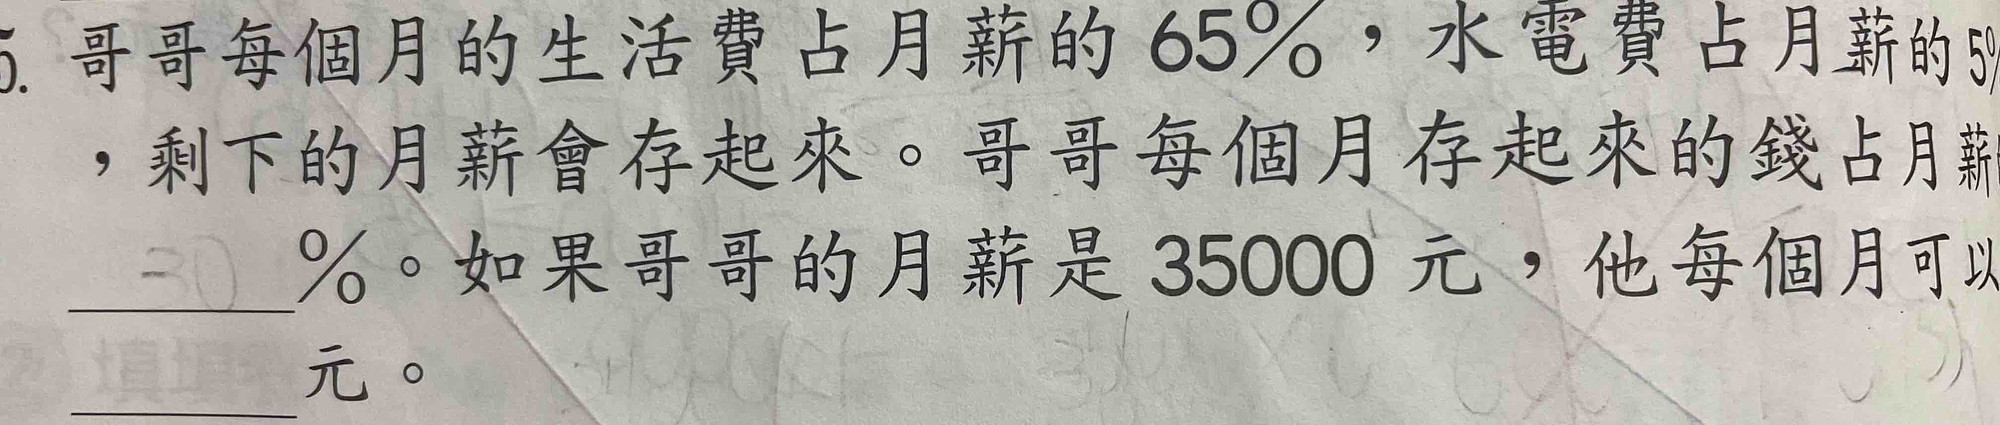 5. 哥哥每個月的生活費占月薪的 65%，水電費占月薪的 5%
，剩下的月薪會存起來。哥哥每個月存起來的錢占月薪
%。如果哥哥的月薪是 35000 元，他每個月可以
元。